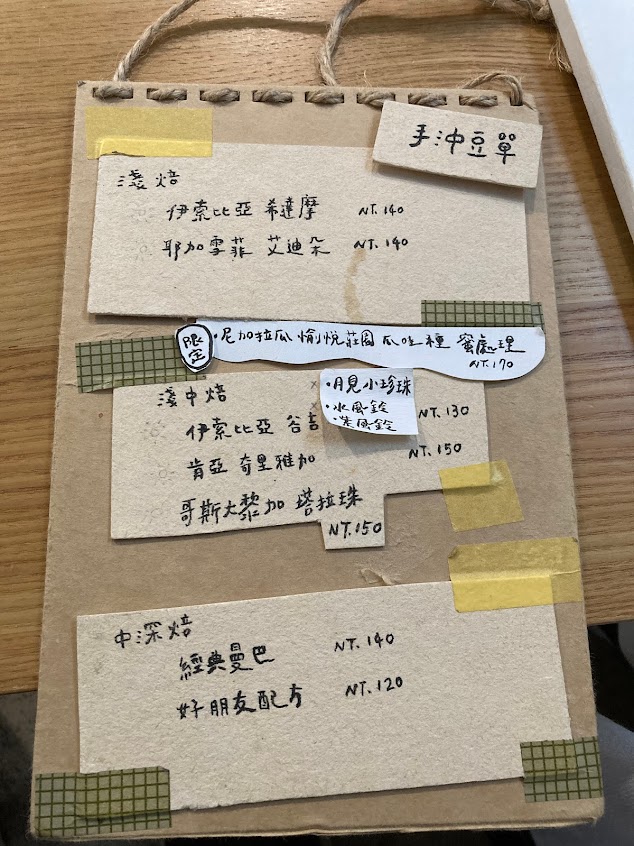 手沖豆單
淺焙
伊索比亞 希達摩 NT.140
耶加雪菲 艾迪朵 NT.140
限定
·尼加拉瓜 愉悅莊園 爪哇種 蜜處理
NT.170
淺中焙
·月見小珍珠
·水風鈴
·紫風鈴
伊索比亞 谷吉 NT.130
肯亞 奇里雅加 NT.150
哥斯大黎加 塔拉珠
NT.150
中深焙
經典曼巴 NT.140
好朋友配方 NT.120